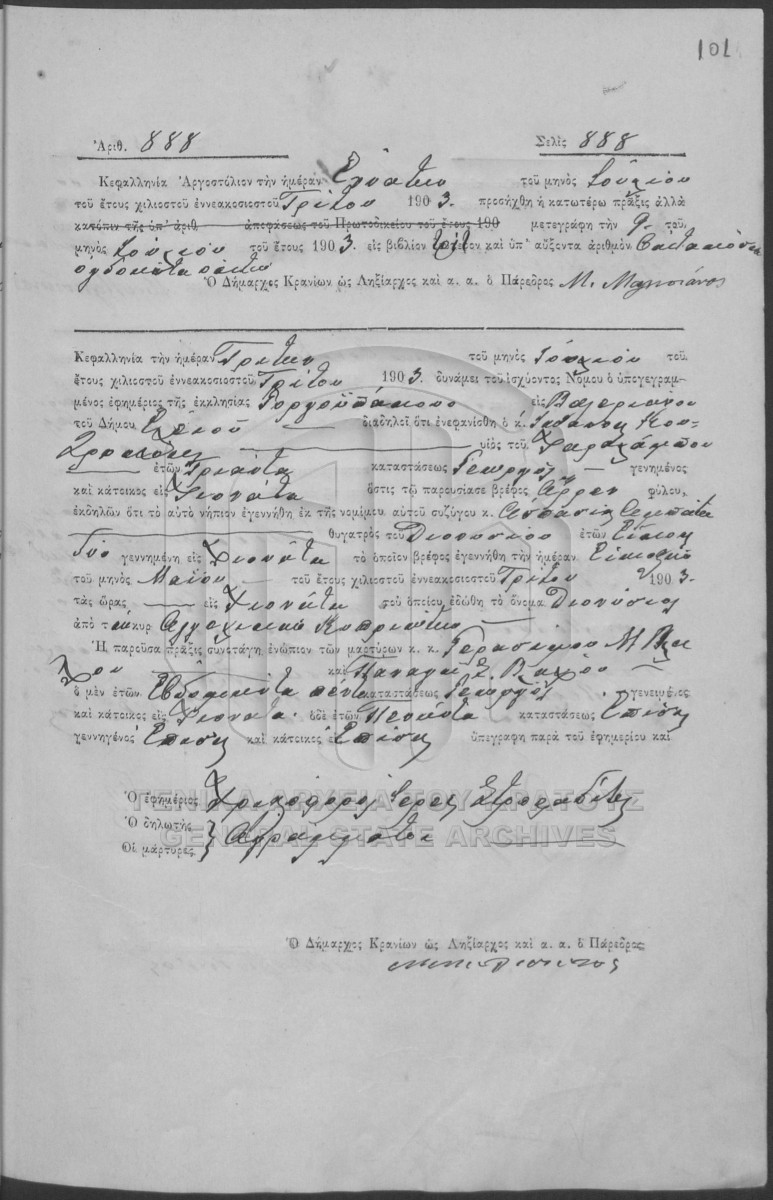 101
Ἀριθ. 888 Σελὶς 888
Κεφαλληνία Ἀργοστόλιον τὴν ἡμέραν Ἐνάτην τοῦ μηνὸς Ἰουλίου
τοῦ ἔτους χιλιοστοῦ ἐννεακοσιοστοῦ Τρίτου 1903. προσήχθη ἡ κατωτέρω πρᾶξις ἀλλὰ
κατόπιν τῆς ὑπ' ἀριθ. ἀποφάσεως τοῦ Πρωτοδικείου τοῦ ἔτους 190 μετεγράφη τὴν 9 τοῦ
μηνὸς Ἰουλίου τοῦ ἔτους 1903. εἰς βιβλίον καὶ ὑπ' αὔξοντα ἀριθμὸν
ὀγδοήκοντα ὀκτὼ
Ὁ Δήμαρχος Κρανίων ὡς Ληξίαρχος καὶ α. α. ὁ Πάρεδρος Μ.
Κεφαλληνία τὴν ἡμέραν Τρίτην τοῦ μηνὸς Ἰουλίου τοῦ
ἔτους χιλιοστοῦ ἐννεακοσιοστοῦ Τρίτου 1903. δυνάμει τοῦ ἰσχύοντος Νόμου ὁ ὑπογεγραμ-
μένος ἐφημέριος τῆς ἐκκλησίας εἰς Βαλεριάνου
τοῦ Δήμου διαδηλοῖ ὅτι ἐνεφανίσθη ὁ κ.
υἱὸς τοῦ Χαραλάμπου
ἐτῶν Τριάντα καταστάσεως Γεωργὸς γενημένος
καὶ κάτοικος εἰς Χιονάτα ὅστις τῷ παρουσίασε βρέφος ἄρρεν φύλου,
ἐκδηλῶν ὅτι τὸ αὐτὸ νήπιον ἐγεννήθη ἐκ τῆς νομίμου αὐτοῦ συζύγου κ. Ἀσπασία
θυγατρὸς τοῦ Διονυσίου ἐτῶν Εἴκοσι
δύο γεννημένη εἰς Χιονάτα τὸ ὁποῖον βρέφος ἐγεννήθη τὴν ἡμέραν
τοῦ μηνὸς Μαΐου τοῦ ἔτους χιλιοστοῦ ἐννεακοσιοστοῦ Τρίτου 1903.
τὰς ὥρας εἰς Χιονάτα τοῦ ὁποίου ἐδώθη τὸ ὄνομα Διονύσιος
ἀπὸ
Ἡ παροῦσα πρᾶξις συνετάγη ἐνώπιον τῶν μαρτύρων κ. κ. Γερασίμου Μ.
καὶ Παναγῆ
ὁ μὲν ἐτῶν Ἑβδομήκοντα πέντε καταστάσεως Γεωργὸς γενειμένος
καὶ κάτοικος εἰς Χιονάτα ὁ δὲ ἐτῶν Πενήντα καταστάσεως Ἐπίσης
γεννηγένος Ἐπίσης καὶ κάτοικος Ἐπίσης ὑπέγραφη παρὰ τοῦ ἐφημερίου καὶ
Ὁ ἐφημέριος Χριστόφορος Ἱερεὺς
Ὁ δηλωτὴς
Οἱ μάρτυρες } Ἀγράμματοι
ΓΕΝΙΚΑ ΑΡΧΕΙΑ ΤΟΥ ΚΡΑΤΟΥΣ
GENERAL STATE ARCHIVES
Ὁ Δήμαρχος Κρανίων ὡς Ληξίαρχος καὶ α. α. ὁ Πάρεδρος